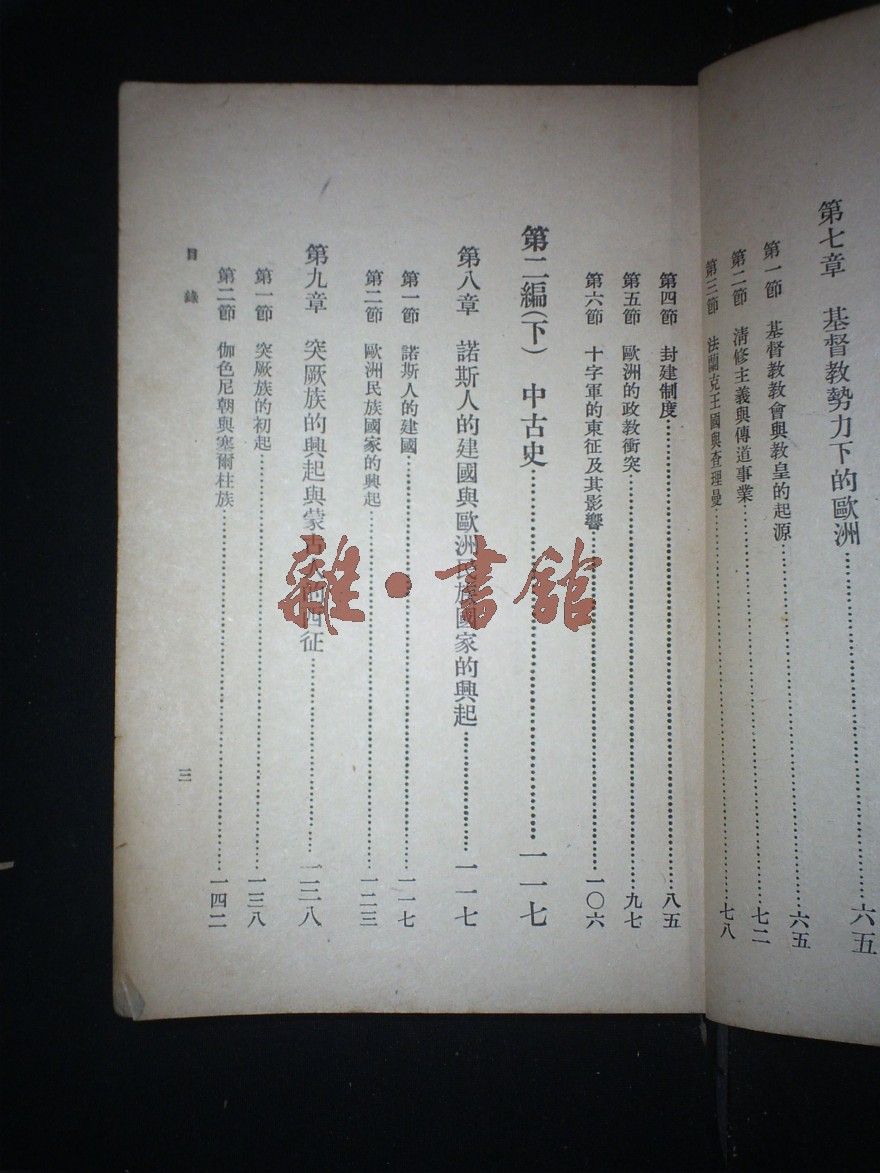 第七章　基督教勢力下的歐洲……六五
第一節　基督教教會與教皇的起源……六五
第二節　清修主義與傳道事業……七二
第三節　法蘭克王國與查理曼……七八
第四節　封建制度……八五
第五節　歐洲的政教衝突……九七
第六節　十字軍的東征及其影響……一〇六
第二編（下）　中古史……一一七
第八章　諾斯人的建國與歐洲民族國家的興起……一一七
第一節　諾斯人的建國……一一七
第二節　歐洲民族國家的興起……一二三
第九章　突厥族的興起與蒙古人的西征……一三八
第一節　突厥族的初起……一三八
第二節　伽色尼朝與塞爾柱族……一四二
目錄
三
雜·書館